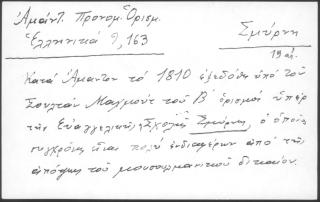 Ἀμάντ. Προνομ. Ὁρισμ.
Ἑλληνικά 9, 163
Σμύρνη
19 αἰ.
Κατά Ἄμαντον τό 1810 ἐξεδόθη ὑπό τοῦ
Σουλτάν Μαχμούτ τοῦ Β΄ ὁρισμός ὑπέρ
τῆς Εὐαγγελικῆς Σχολῆς Σμύρνης, ὁ ὁποῖος
συγχρόνως εἶναι πολύ ἐνδιαφέρων ἀπό τῆς
ἀπόψεως τοῦ μουσουλμανικοῦ δικαίου.